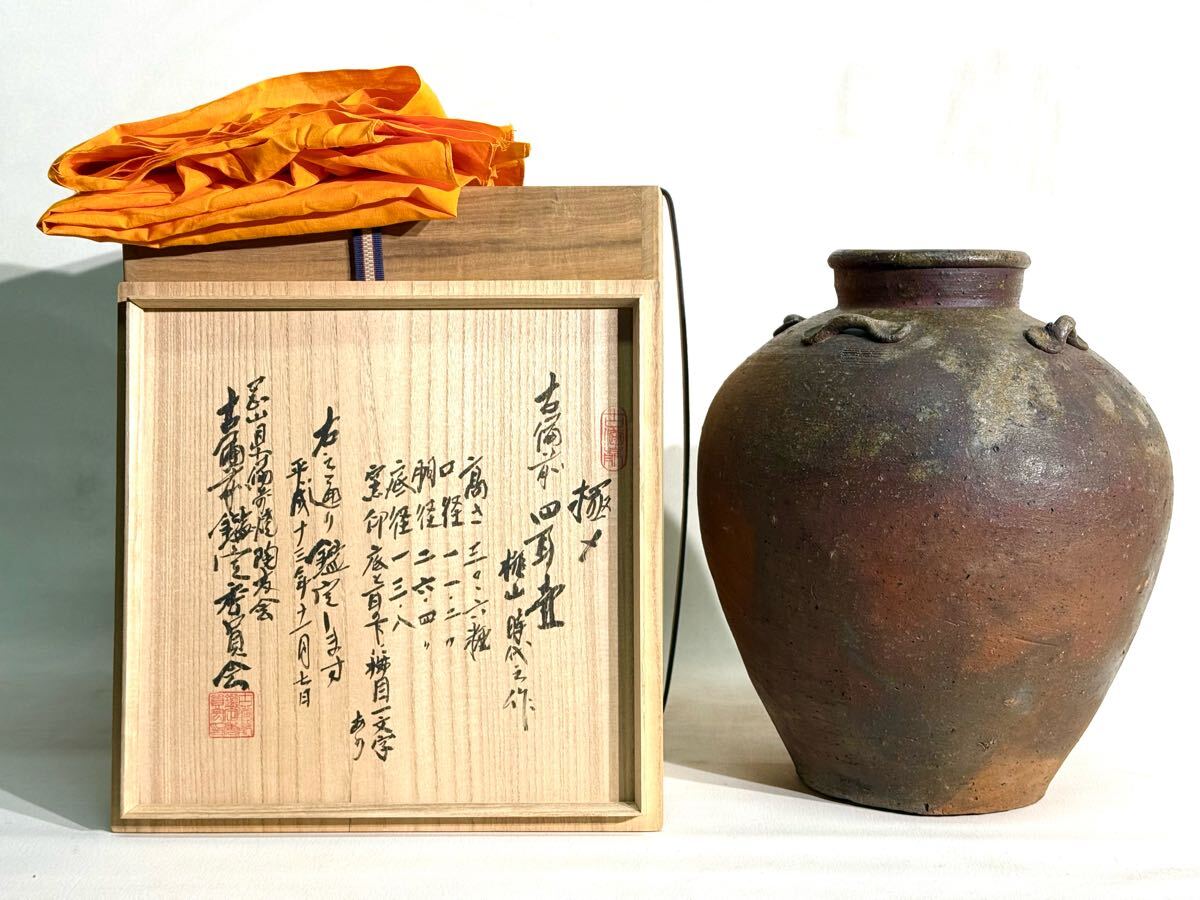 極メ
古備前 四耳壷
桃山時代之作
高さ 三〇・六糎
口径 一一・二〃
胴径 二六・四〃
底径 一三・八
窯印 底と耳下ニ櫛目一文字
あり
右之通り鑑定します
平成十三年十一月七日
岡山県備前焼陶友会
古備前鑑定委員会